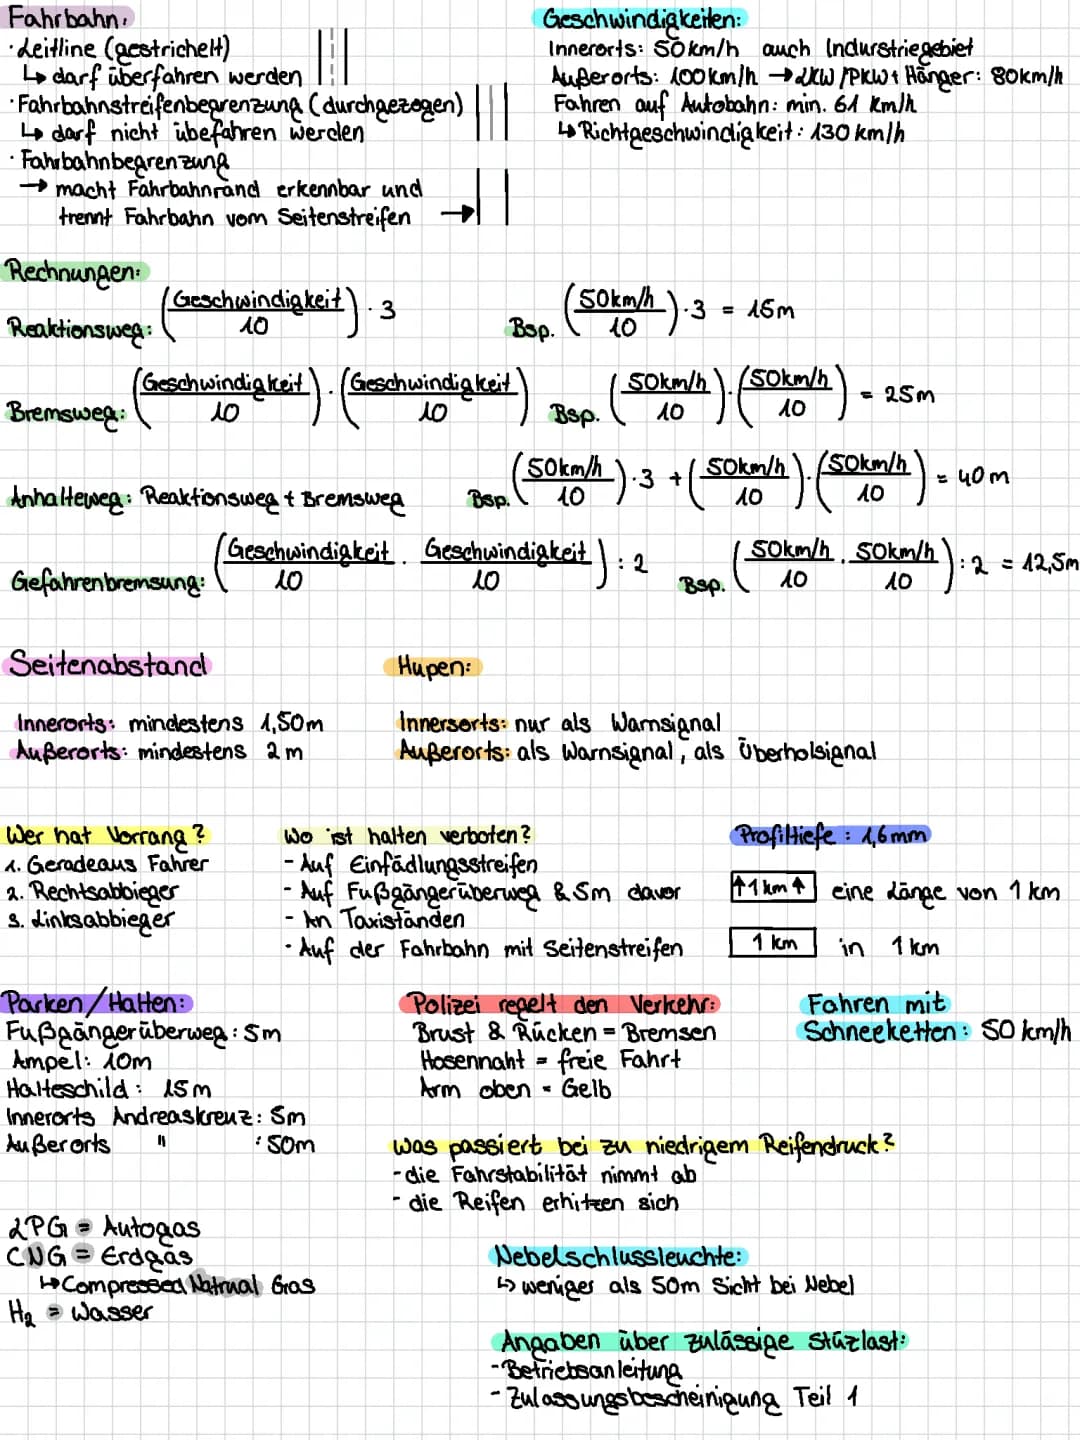 Fahrbahn:
· Leitline (gestrichelt)
↳ darf überfahren werden
· Fahrbahnstreifenbegrenzung (durchgezogen)
↳ darf nicht übefahren werden
· Fahrbahnbegrenzung
→ macht Fahrbahnrand erkennbar und
trennt Fahrbahn vom Seitenstreifen →
Geschwindigkeiten:
Innerorts: 50km/h auch Indurstriegebiet
Außerorts: 100km/h → LKW/PKW+ Hänger: 80km/h
Fahren auf Autobahn: min. 61 km/h
↳ Richtgeschwindigkeit: 130 km/h
Rechnungen:
Reaktionsweg: (Geschwindigkeit/10) · 3 Bsp. (50km/h/10) · 3 = 15m
Bremsweg: (Geschwindigkeit/10) · (Geschwindigkeit/10) Bsp. (50km/h/10) · (50km/h/10) = 25m
Anhalteweg: Reaktionsweg + Bremsweg Bsp. (50km/h/10) · 3 + (50km/h/10) · (50km/h/10) = 40m
Gefahrenbremsung: (Geschwindigkeit/10 · Geschwindigkeit/10) : 2 Bsp. (50km/h/10 · 50km/h/10) : 2 = 12,5m
Seitenabstand
Innerorts: mindestens 1,50m
Außerorts: mindestens 2m
Hupen:
Innersorts: nur als Warnsignal
Außerorts: als Warnsignal, als Überholsignal
Wer hat Vorrang?
1. Geradeaus Fahrer
2. Rechtsabbieger
3. Linksabbieger
Wo ist halten verboten?
- Auf Einfädlungsstreifen
- Auf Fußgängerüberweg & 5m davor
- An Taxiständen
- Auf der Fahrbahn mit Seitenstreifen
Profiltiefe: 1,6mm
↑1km↑ eine Länge von 1 km
1 km in 1km
Parken/Halten:
Fußgängerüberweg: 5m
Ampel: 10m
Halteschild: 15m
Innerorts Andreaskreuz: 5m
Außerorts " : 50m
Polizei regelt den Verkehr:
Brust & Rücken = Bremsen
Hosennaht = freie Fahrt
Arm oben = Gelb
Fahren mit
Schneeketten: 50 km/h
Was passiert bei zu niedrigem Reifendruck?
- die Fahrstabilität nimmt ab
- die Reifen erhitzen sich
LPG = Autogas
CNG = Erdgas
↳ Compressed Natrual Gras
H₂ = Wasser
Nebelschlussleuchte:
↳ weniger als 50m Sicht bei Nebel
Angaben über zulässige Stüzlast:
- Betriebsanleitung
- Zulassungsbescheinigung Teil 1